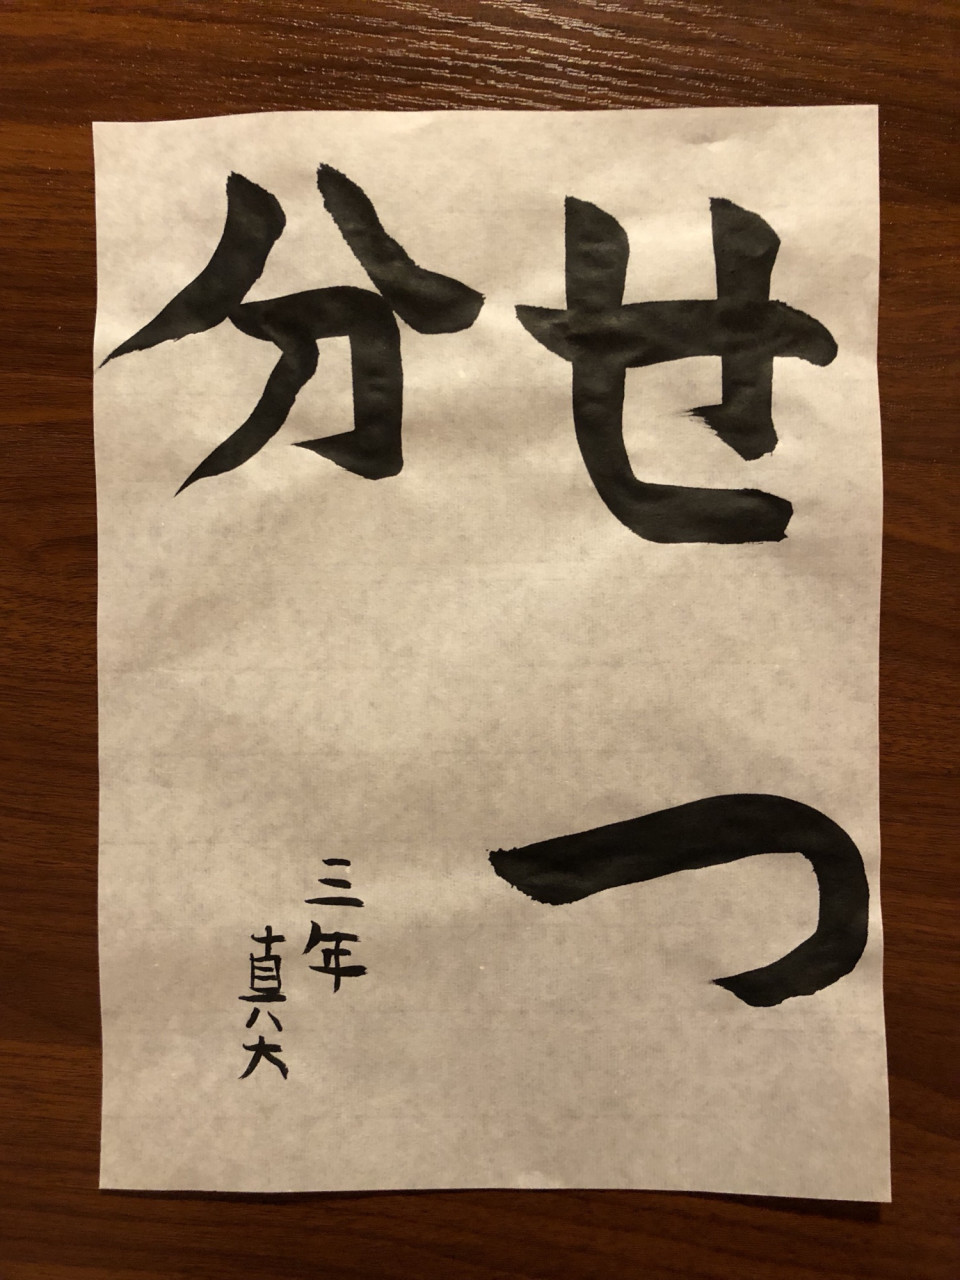 せつ
分
三年
真大